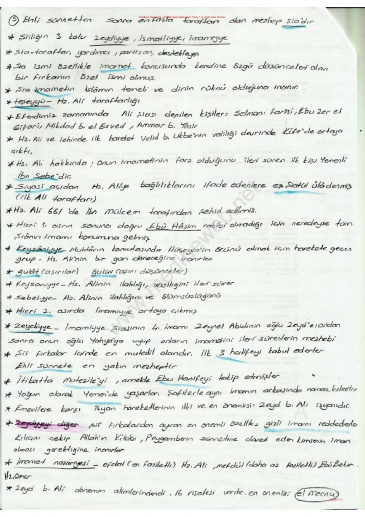 ③ Ehli sünnetten sonra en fazla tarafları olan mezhep şia'dır
* Şiiliğin 3 kolu zeydiyye, ismailiyye, imamiyye
* Şia-taraftar, yardımcı, partizan, destekleyen
* Şia ismi özellikle imamet konusunda kendine özgü düşünceleri olan
bir fırkanın özel ismi olmuş.
* Şia imametin islamın temeli ve dinin rüknü olduğuna inanır
* teşeyyu - Hz. Ali taraftarlığı
* Efendimiz zamanında Ali şiası denilen kişiler: Selman farisi, Ebu Zer el
Gıfari, Mikdad b. el Esved, Ammar b. Yasir
* Hz. Ali ve lehinde ilk hareket Velid b. Ukbe'nin valiliği devrinde Kûfe'de ortaya
çıktı.
* Hz. Ali hakkında; onun imametinin farz olduğunu ileri süren ilk kişi Yemenli
İbn Sebe'dir.
* Siyasi açıdan Hz. Aliye bağlılıklarını ifade edenlere eş Şiatül Ula denmiş
(ilk Ali taraftarı)
* Hz. Ali 661'de İbn Mülcem tarafından şehid edilmiş.
* Hicri 1. asrın sonuna doğru Ebû Hâşim razı olmadığı için neredeyse tüm
Şianın imamı konumuna gelmiş
* Keysaniyye Muhtârın komutasında Hüseyin'in öcünü almak için harekete geçen
grup. Hz. Ali'nin bir gün döneceğine inanırlar
* gulat (aşırılar) gulüv (aşırı düşünceler)
* Keysaniyye - Hz. Alinin ilahlığı, vasiliğini ileri sürer
* Sebeiyye - Hz. Alinin ilahlığı ve ölümsüzlüğünü
* Hicri 2. asırda imamiyye ortaya çıkmış
* Zeydiyye - İmamiyye Şiasının 4. imamı Zeynel Abidinin oğlu Zeyd'e ondan
sonra onun oğlu Yahya'ya uyup onların imametini ileri sürenlerin mezhebi
* Şii fırkalar içinde en mutedil olandır. İlk 3 halifeyi kabul ederler
Ehli sünnete en yakın mezheptir
* İtikatta Mutezile'yi, amelde Ebu Hanifeyi takip etmişler
* Yoğun olarak Yemen'de yaşarlar. Şafilerle aynı imamın arkasında namaz kılarlar
* Emevilere karşı isyan hareketlerinin ilki ve en önemlisi Zeyd b. Ali isyanıdır.
* Zeydiyyeyi diğer şii fırkalardan ayıran en önemli özellik gizli imamı reddederler
Kılıcını çekip Allah'ın Kitabı, Peygamberin sünnetine davet eden kimsenin imam
olması gerektiğine inanırlar
* İmamet nazariyesi - efdal (en faziletli) Hz. Ali, mefdûl (daha az faziletli) Ebu Bekir.
Hz. Ömer
* Zeyd b. Ali döneminin alimlerindendi. 16 risalesi vardır. en önemlisi el Mecmu